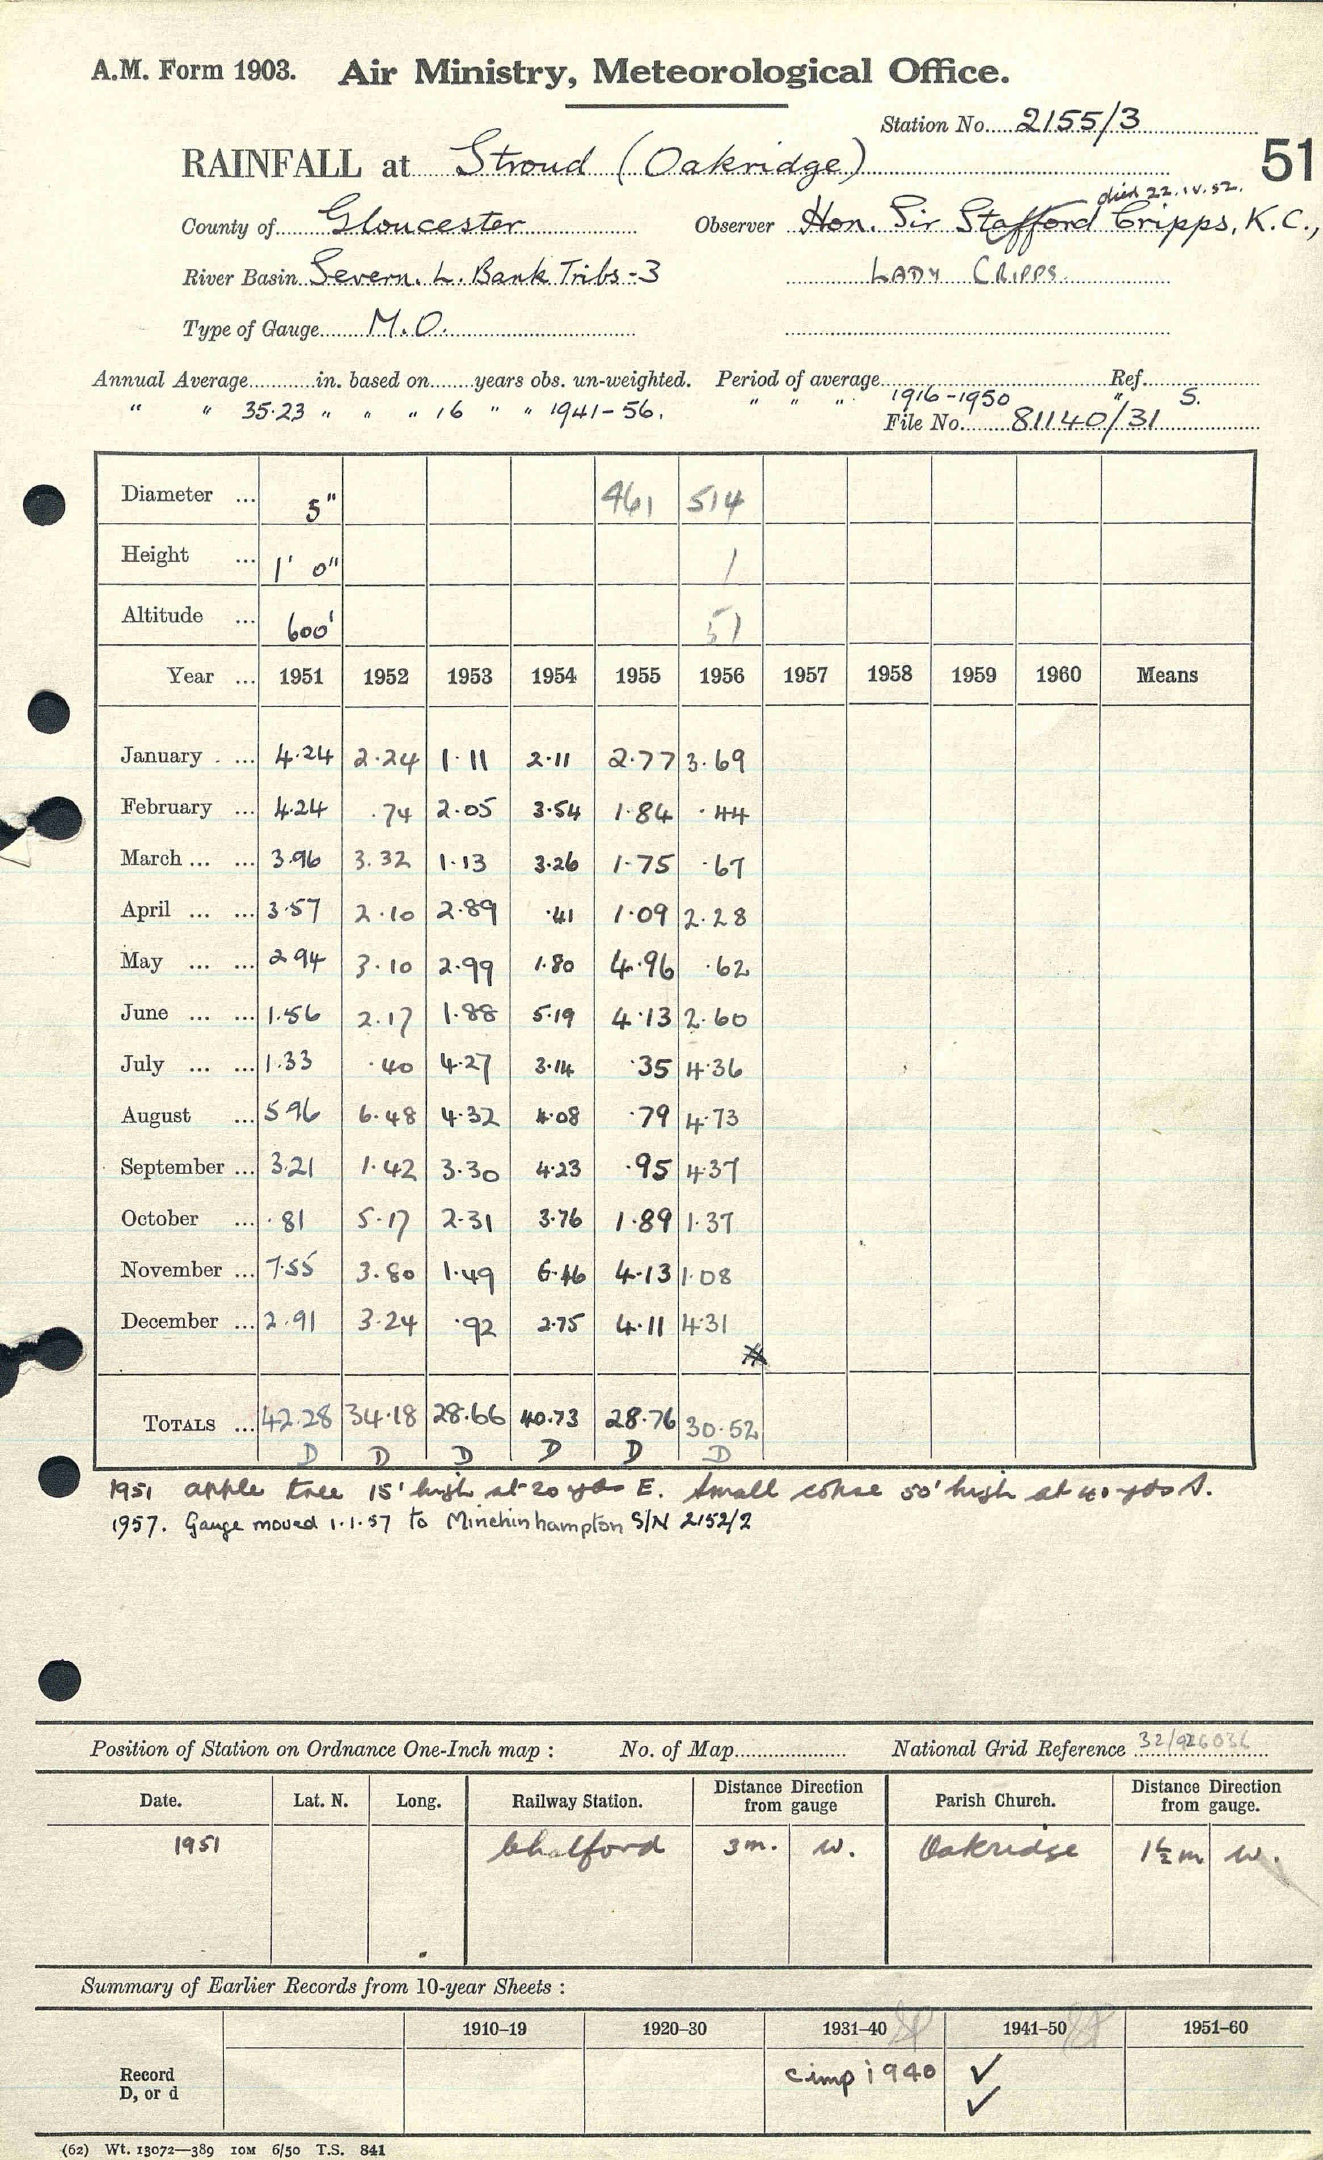 A.M. Form 1903. Air Ministry, Meteorological Office.
Station No. 2155/3
51
RAINFALL at Stroud (Oakridge)
died 22.IV.52.
County of Gloucester Observer Hon. Sir Stafford Cripps, K.C.,
River Basin Severn. L. Bank Tribs-3 LADY CRIPPS.
Type of Gauge M.O.
Annual Average in. based on years obs. un-weighted. Period of average Ref.
" " 35.23 " " " 16 " " 1941-56. " " " 1916-1950 " S.
File No. 81140/31
Diameter ... 5" 461 514
Height ... 1' 0" 1
Altitude ... 600' 51
Year ... 1951 1952 1953 1954 1955 1956 1957 1958 1959 1960 Means
January ... 4.24 2.24 1.11 2.11 2.77 3.69
February ... 4.24 .74 2.05 3.54 1.84 .44
March ... ... 3.96 3.32 1.13 3.26 1.75 .67
April ... ... 3.57 2.10 2.89 .41 1.09 2.28
May ... ... 2.94 3.10 2.99 1.80 4.96 .62
June ... ... 1.56 2.17 1.88 5.19 4.13 2.60
July ... ... 1.33 .40 4.27 3.14 .35 4.36
August ... 5.96 6.48 4.32 4.08 .79 4.73
September ... 3.21 1.42 3.30 4.23 .95 4.37
October ... .81 5.17 2.31 3.76 1.89 1.37
November ... 7.55 3.80 1.49 6.46 4.13 1.08
December ... 2.91 3.24 .92 2.75 4.11 4.31
TOTALS ... 42.28 34.18 28.66 40.73 28.76 30.52
D D D D D D
1951 apple tree 15' high at 20 yds E. Small copse 50' high at 40 yds S.
1957. Gauge moved 1.1.57 to Minchinhampton S/N 2152/2
Position of Station on Ordnance One-Inch map : No. of Map National Grid Reference 32/926036
Date. Lat. N. Long. Railway Station. Distance Direction from gauge Parish Church. Distance Direction from gauge.
1951 Chalford 3m. W. Oakridge 1½m W.
Summary of Earlier Records from 10-year Sheets :
1910–19 1920–30 1931–40 1941–50 1951–60
Record D, or d cimp 1940 ✓
✓
(62) Wt. 13072—389 10M 6/50 T.S. 841